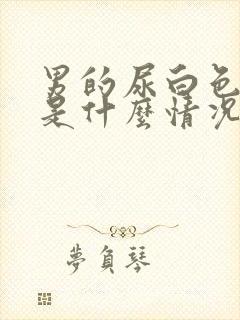 男的尿白色
是什麼情況
夢負琴